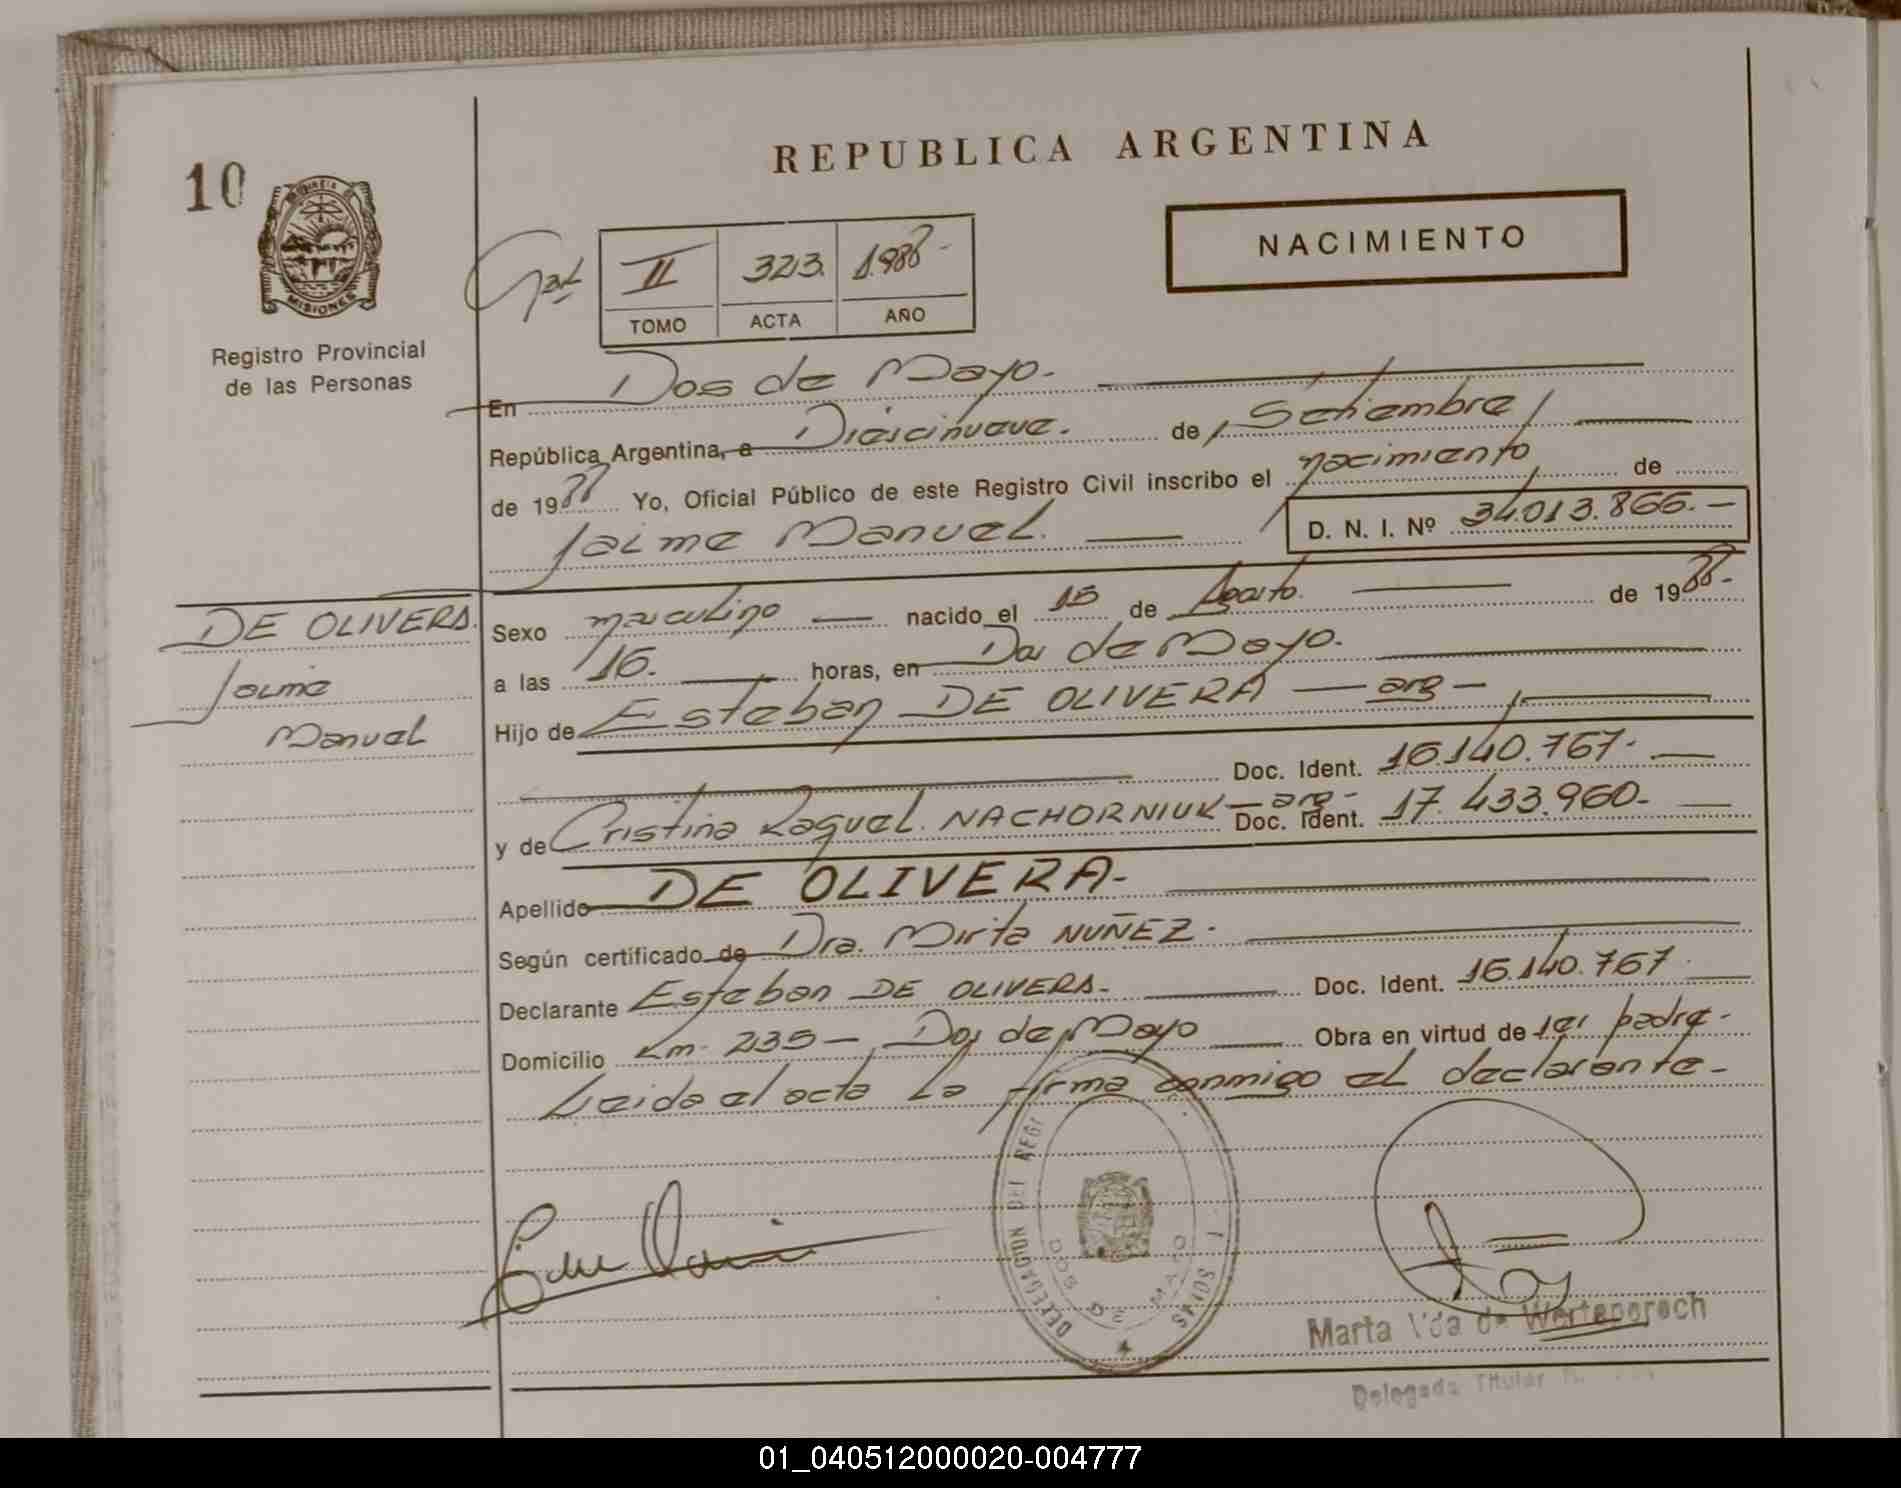 REPUBLICA ARGENTINA
10
NACIMIENTO
II 323. 1.988-
TOMO ACTA AÑO
MISIONES
Registro Provincial
de las Personas
En Dos de Mayo.-
República Argentina, a Diescinueve. de Setiembre
de 1988 Yo, Oficial Público de este Registro Civil inscribo el nacimiento de
Jaime Manuel. D. N. I. Nº 34.013.866.-
DE OLIVERA.
Jaime
Manuel
Sexo masculino nacido el 15 de Agosto. de 1988.-
a las 16. horas, en Dos de Mayo.
Hijo de Esteban DE OLIVERA - arg -
Doc. Ident. 16.140.767.-
y de Cristina Raquel NACHORNIUK - arg - Doc. Ident. 17.433.960.-
Apellido DE OLIVERA-
Según certificado de Dra. Mirta NUÑEZ.
Declarante Esteban DE OLIVERA.- Doc. Ident. 16.140.767.
Domicilio Km. 235 - Dos de Mayo Obra en virtud de ser padre.-
Leida el acta la firma conmigo el declarante.-
DELEGACION DEL REGI
DOS DE MAYO
Marta Vda de
Delegada Titular
01_040512000020-004777